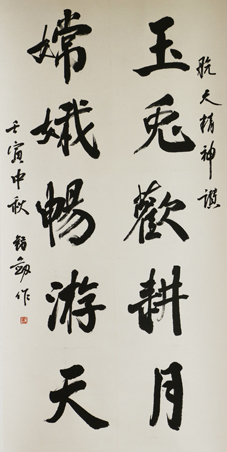 航天精神讚
玉兎歡耕月
嫦娥暢游天
壬寅中秋
作